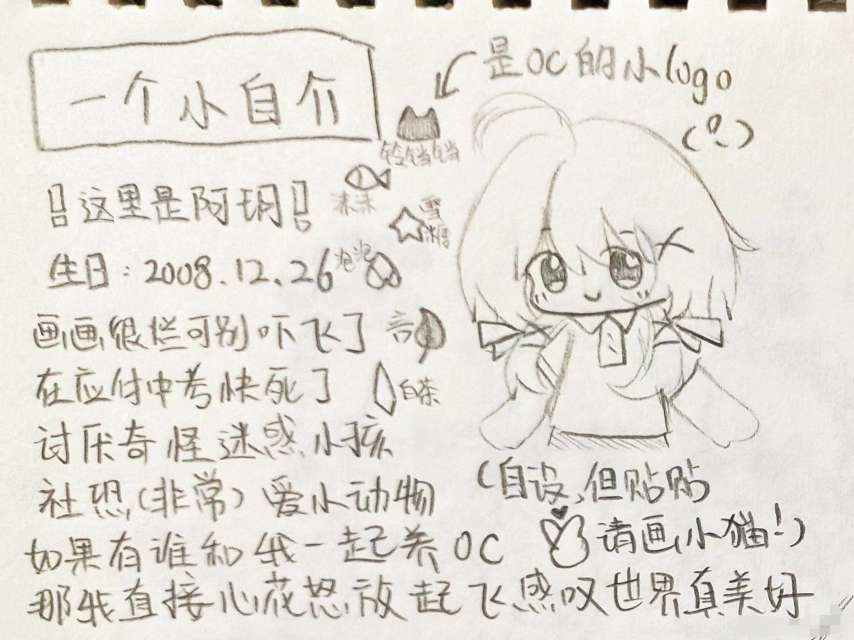 一个小自介
是OC的小logo
(？)
铃铛铛
‼这里是阿玥‼
沫沫
雪糖
生日：2008.12.26
泡泡
画画很烂可别吓飞了
言
在应付中考快死了
白茶
讨厌奇怪迷惑小孩
社恐(非常) 爱小动物
(自设，但贴贴
请画小猫！)
如果有谁和我一起养OC
那我直接心花怒放起飞感叹世界真美好